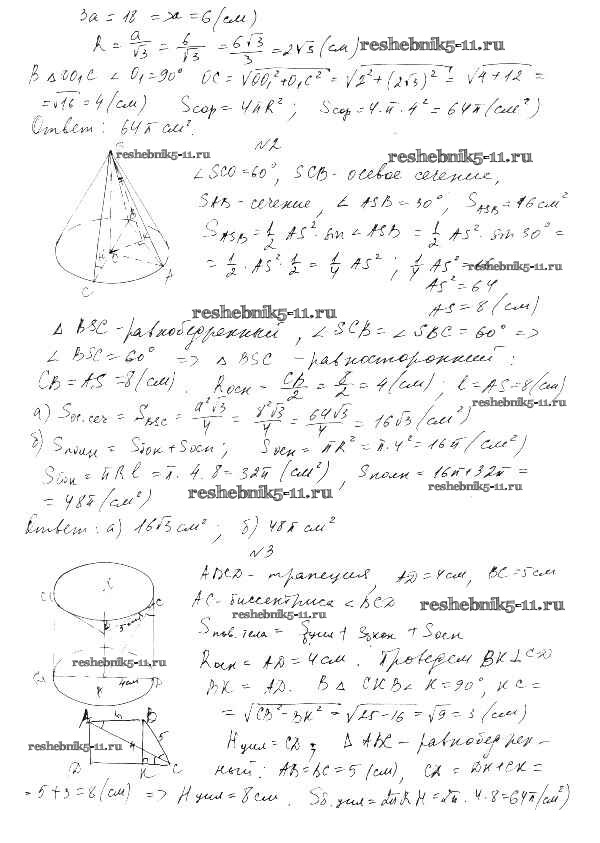 3a = 18 => a = 6 (см)
R = a/√3 = 6/√3 = 6√3/3 = 2√3 (см) reshebnik5-11.ru
В △OO₁C ∠O₁ = 90° OC = √OO₁² + O₁C² = √2² + (2√3)² = √4 + 12 =
= √16 = 4 (см) Sсфр = 4πR²; Sсфр = 4·π·4² = 64π (см²)
Ответ: 64π см².
N2
reshebnik5-11.ru
reshebnik5-11.ru
∠SCO = 60°, SCB - осевое сечение,
SAB - сечение, ∠ASB = 30°, S ASB = 16 см²
S ASB = 1/2 AS² · sin ∠ASB = 1/2 AS² · sin 30° =
= 1/2 · AS² · 1/2 = 1/4 AS²; 1/4 AS² = 16
reshebnik5-11.ru
AS² = 64
AS = 8 (см)
reshebnik5-11.ru
△BSC - равнобедренный, ∠SCB = ∠SBC = 60° =>
∠BSC = 60° => △BSC - равносторонний:
CB = AS = 8 (см). Rосн = CB/2 = 8/2 = 4 (см); l = AS = 8 (см)
reshebnik5-11.ru
а) Sос.сеч = S BSC = a²√3/4 = 8²√3/4 = 64√3/4 = 16√3 (см²)
б) Sполн = Sбок + Sосн; Sосн = πR² = π·4² = 16π (см²)
Sбок = πRl = π·4·8 = 32π (см²), Sполн = 16π + 32π =
= 48π (см²) reshebnik5-11.ru
reshebnik5-11.ru
Ответ: а) 16√3 см²; б) 48π см²
N3
ABCD - трапеция, AD = 4 см, BC = 5 см
AC - биссектриса ∠BCD reshebnik5-11.ru
reshebnik5-11.ru
Sпов.тела = Sцил + Sкон + Sосн
Rосн = AD = 4 см. Проведем BK ⊥ CD
reshebnik5-11.ru
BK = AD. В △CKB ∠K = 90°, KC =
= √CB² - BK² = √25 - 16 = √9 = 3 (см)
Hцил = CD; △ABC - равнобедрен-
reshebnik5-11.ru
ный: AB = BC = 5 (см), CD = DK + CK =
= 5 + 3 = 8 (см) => Hцил = 8 см. Sб.цил = 2πRH = 2π·4·8 = 64π (см²)